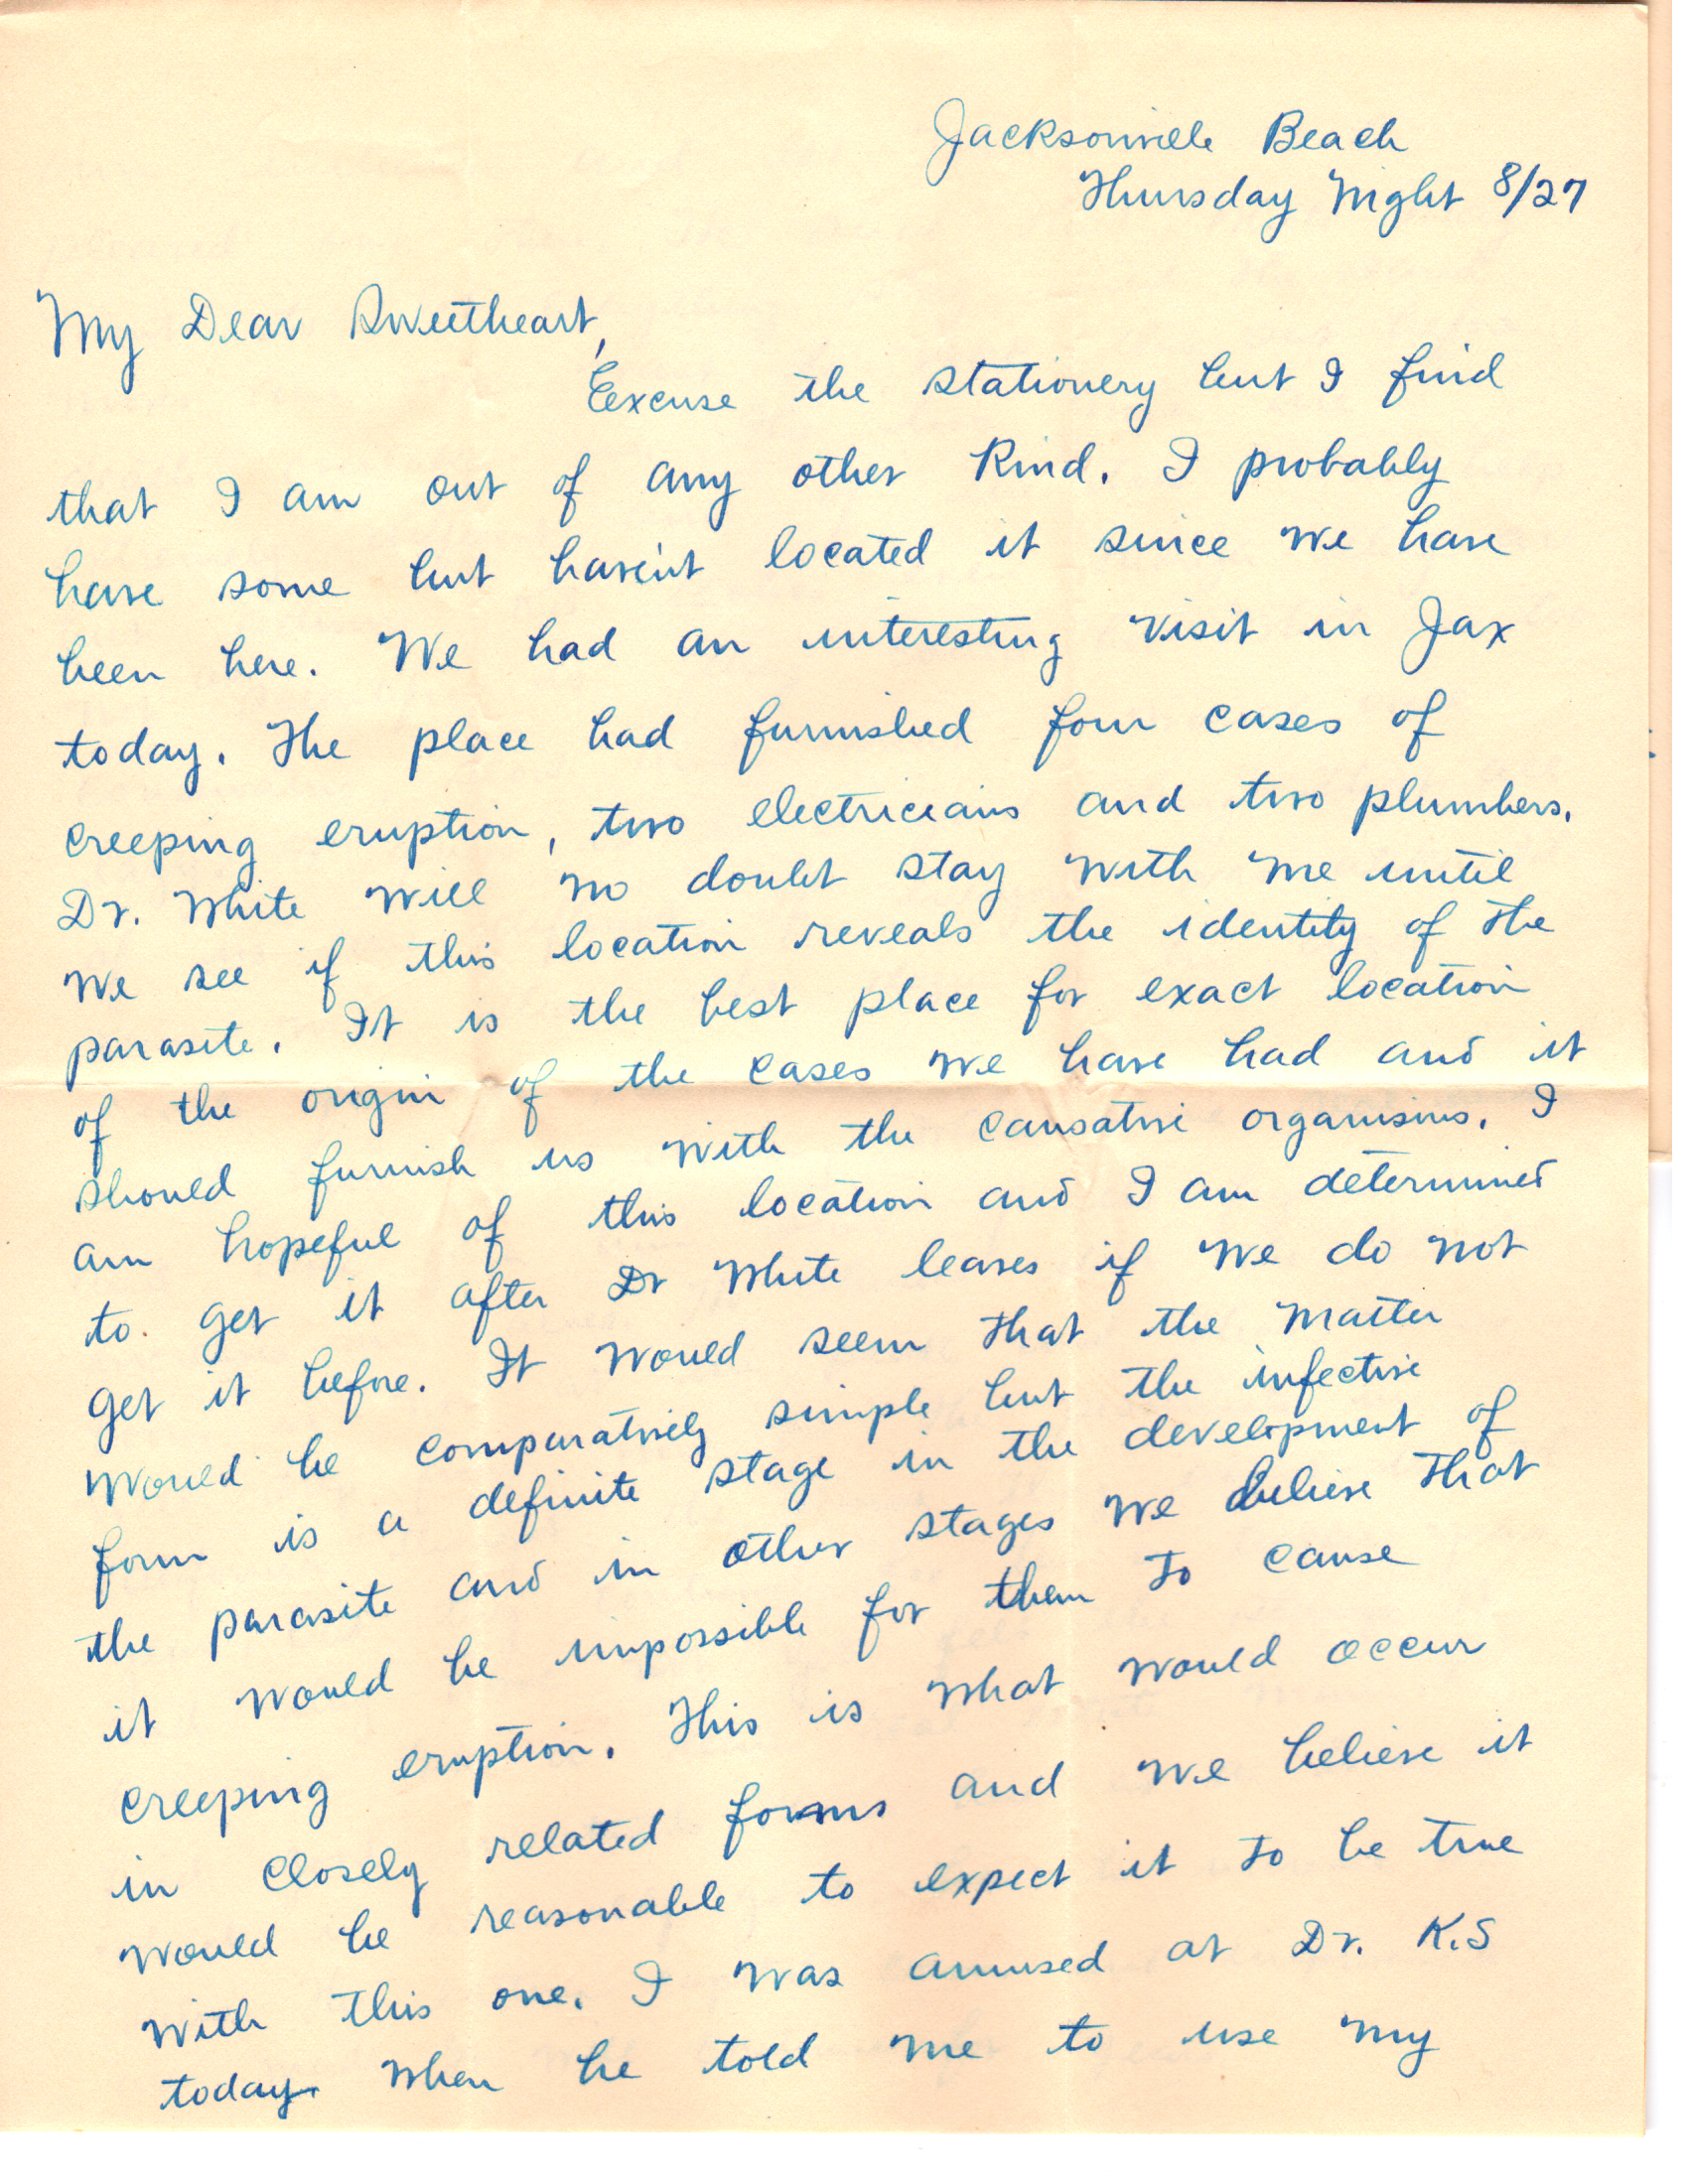 Jacksonville Beach
Thursday Night 8/27
My Dear Sweetheart,
Excuse the stationery but I find
that I am out of any other kind. I probably
have some but haven't located it since we have
been here. We had an interesting visit in Jax
today. The place had furnished four cases of
creeping eruption, two electricians and two plumbers.
Dr. White will no doubt stay with me until
we see if this location reveals the identity of the
parasite. It is the best place for exact location
of the origin of the cases we have had and it
should furnish us with the causative organisms. I
am hopeful of this location and I am determined
to get it after Dr White leaves if we do not
get it before. It would seem that the matter
would be comparatively simple but the infective
form is a definite stage in the development of
the parasite and in other stages we believe that
it would be impossible for them to cause
creeping eruption. This is what would occur
in closely related forms and we believe it
would be reasonable to expect it to be true
with this one. I was amused at Dr. K.S
today. When he told me to use my